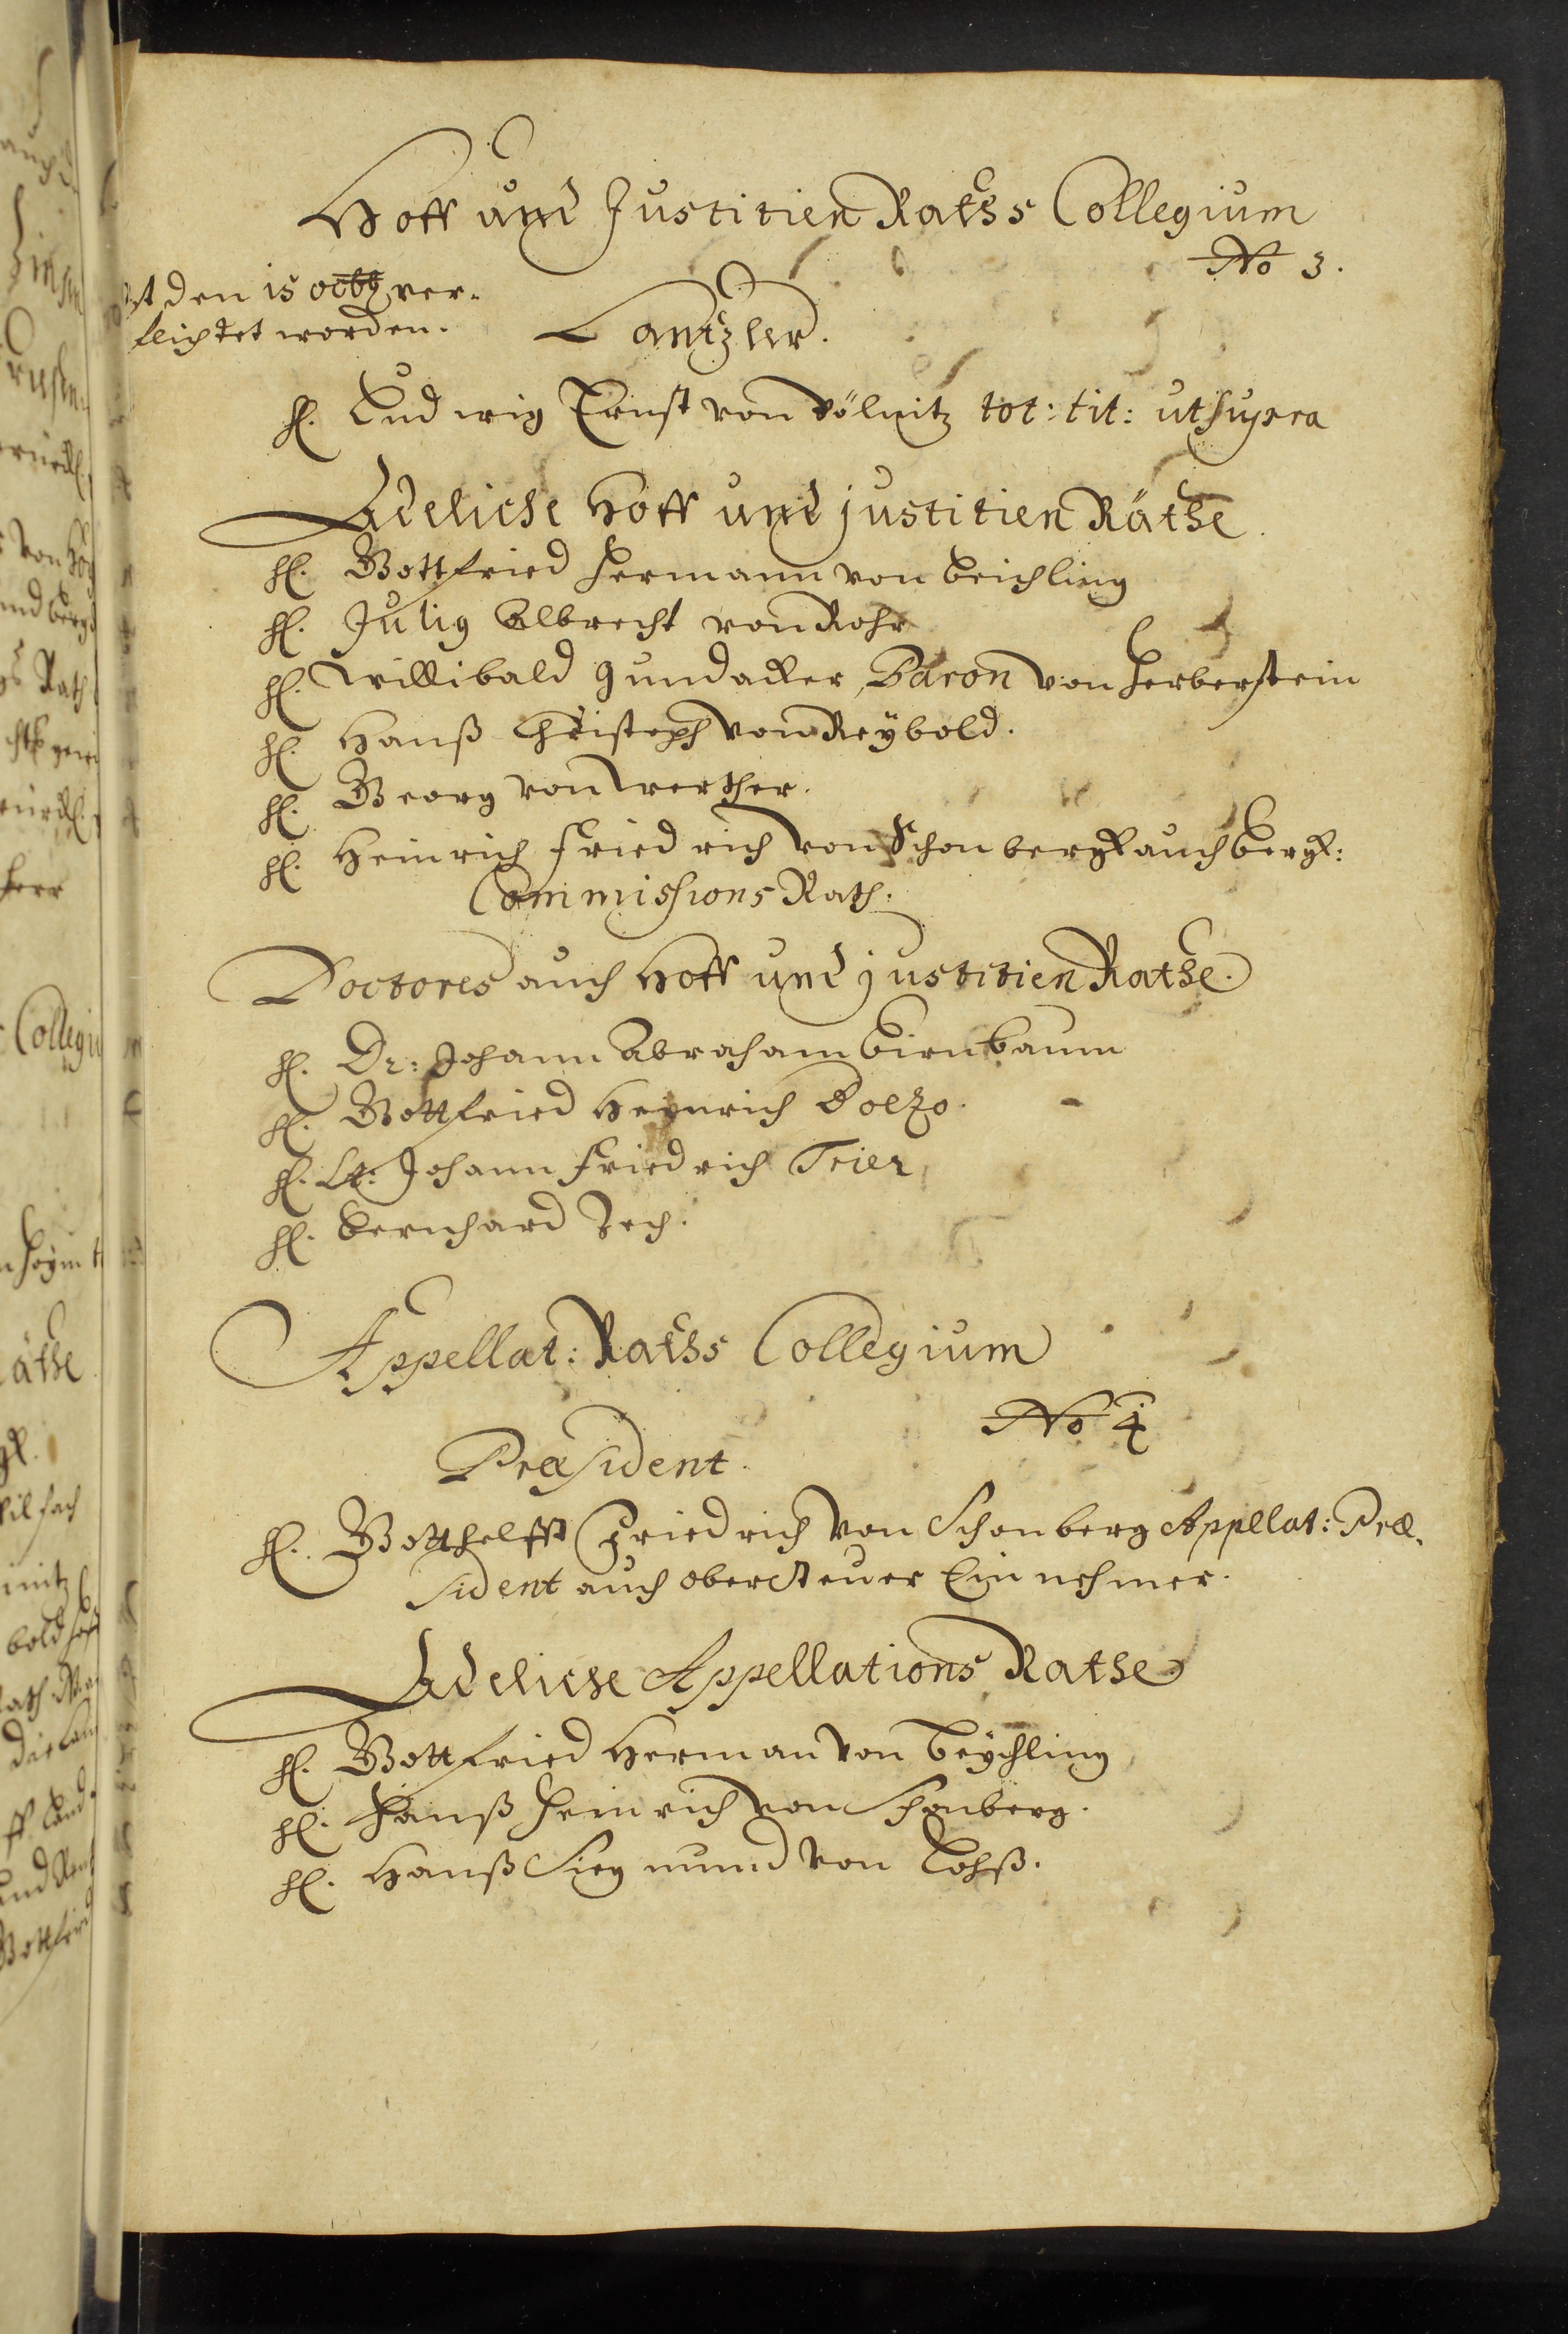 Hoff und Justitien Raths Collegium
No 3.
ist den 15 octbr ver-
pflichtet worden.
Cantzler.
H. Ludwig Ernst von Pölnitz tot: tit: ut supra
Adeliche Hoff und justitien Räthe.
H. Gottfried Hermann von Beichling
H. Julig Albrecht von Rohr
H. Willibald Gundacker, Baron von Herberstein
H. Hanß Christoph von Reÿbold.
H. Georg von Werther.
H. Heinrich Friedrich von Schonbergk auch Bergk:
Commissions Rath.
Doctores auch Hoff und justitien Rathe.
H. Dr: Johann Abraham Birnbaum
H. Gottfried Heinrich
H. Lt: Johann Friedrich Trier
H. Bernhard Zech.
Appellat: Raths Collegium
No 4
Præsident.
H. Gotthelfft Friedrich von Schonberg Appellat: Præ-
sident auch ober Steuer Einnehmer.
Adeliche Appellations Rathe
H. Gottfried Herman von Beÿchling
H. Hanß Heinrich von Schonberg.
H. Hanß Siegmund von Lohß.